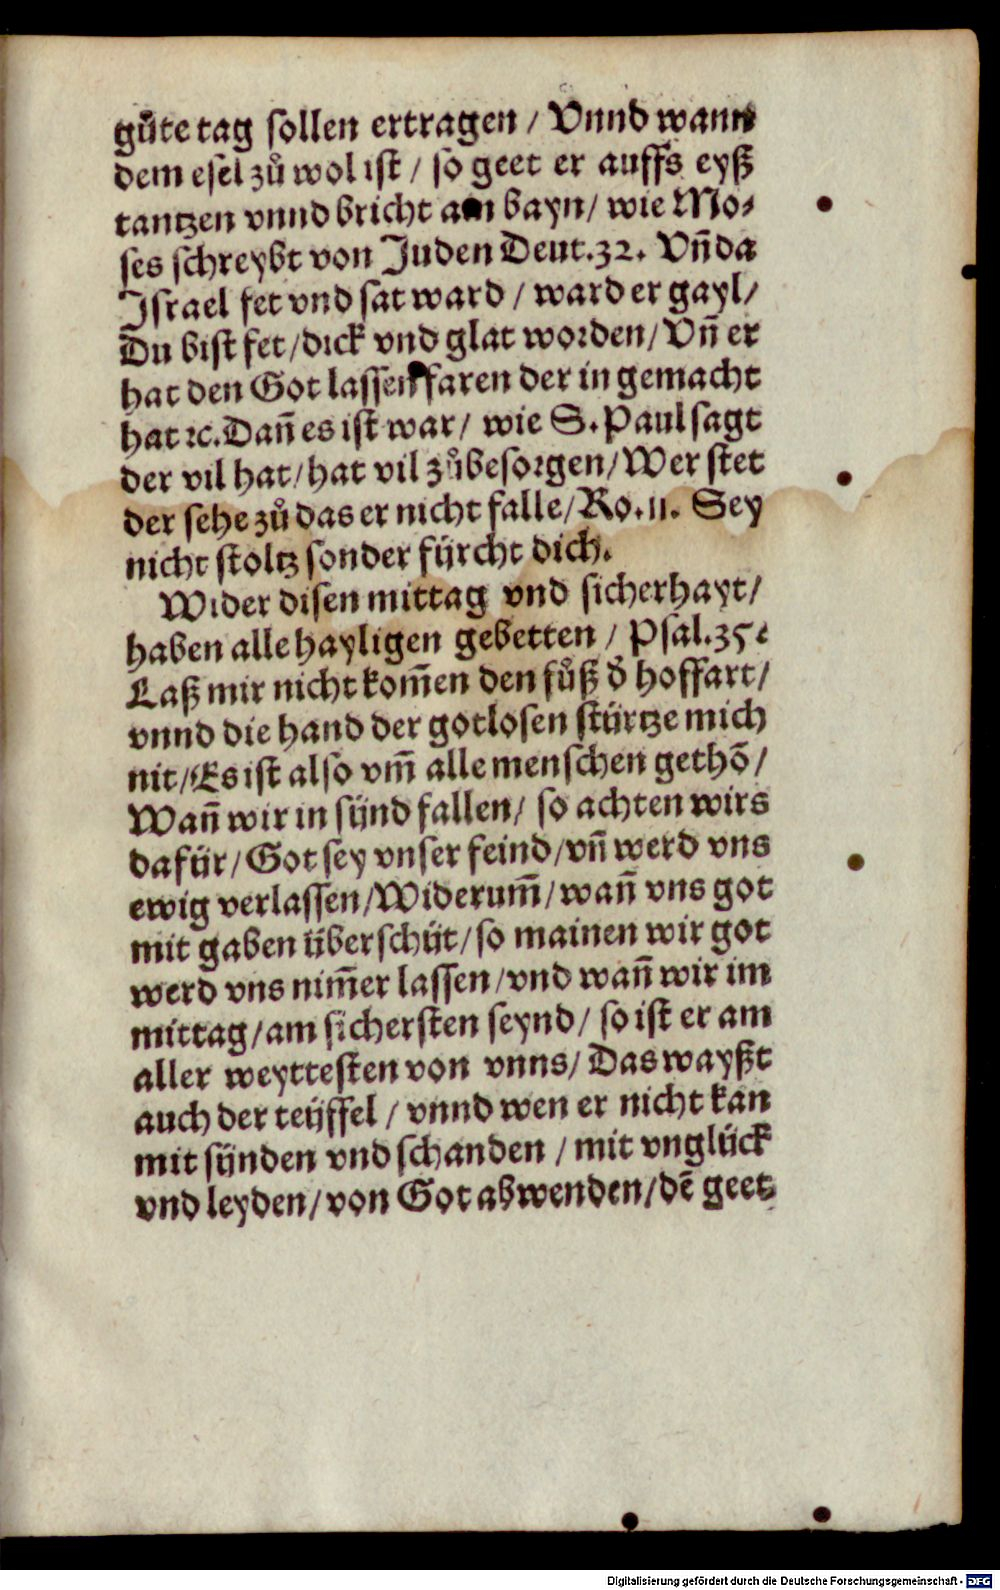 gůte tag sollen ertragen / Vnnd wann
dem esel zů wol ist / so geet er auffs eyß
tantzen vnnd bricht ain bayn / wie Mo⸗
ses schreybt von Juden Deut.32. Vñ da
Israel fet vnd sat ward / ward er gayl /
Du bist fet / dick vnd glat worden / Vñ er
hat den Got lassen faren der in gemacht
hat ⁊c. Dañ es ist war / wie S. Paul sagt
der vil hat / hat vil zůbesorgen / Wer stet
der sehe zů das er nicht falle / Ro.11. Sey
nicht stoltz sonder fürcht dich.
Wider disen mittag vnd sicherhayt /
haben alle hayligen gebetten / Psal.35.
Laß mir nicht kom̃en den fůß d̕ hoffart /
vnnd die hand der gotlosen stürtze mich
nit / Es ist also vm̃ alle menschen gethõ /
Wañ wir in sünd fallen / so achten wirs
dafür / Got sey vnser feind / vñ werd vns
ewig verlassen / Widerum̃ / wañ vns got
mit gaben überschüt / so mainen wir got
werd vns nim̃er lassen / vnd wañ wir im
mittag / am sichersten seynd / so ist er am
aller weyttesten von vnns / Das wayßt
auch der teüffel / vnnd wen er nicht kan
mit sünden vnd schanden / mit vnglück
vnd leyden / von Got abwenden / dẽ geet
Digitalisierung gefördert durch die Deutsche Forschungsgemeinschaft - DFG